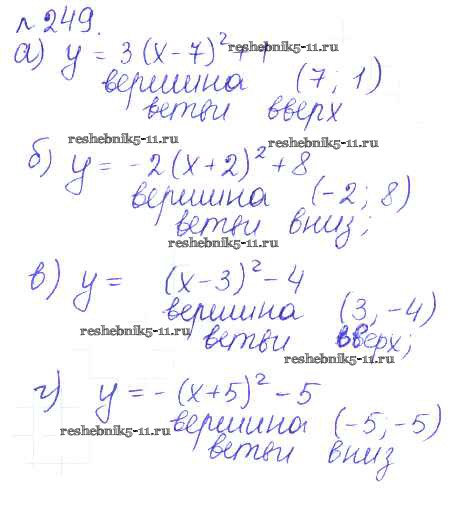 № 249.
а) y = 3(x-7)²+1
reshebnik5-11.ru
вершина (7; 1)
ветви вверх
reshebnik5-11.ru reshebnik5-11.ru
б) y = -2(x+2)²+8
вершина (-2; 8)
ветви вниз;
reshebnik5-11.ru
в) y = (x-3)²-4
вершина (3, -4)
reshebnik5-11.ru
ветви вверх;
reshebnik5-11.ru
г) y = -(x+5)²-5
вершина (-5; -5)
reshebnik5-11.ru
ветви вниз